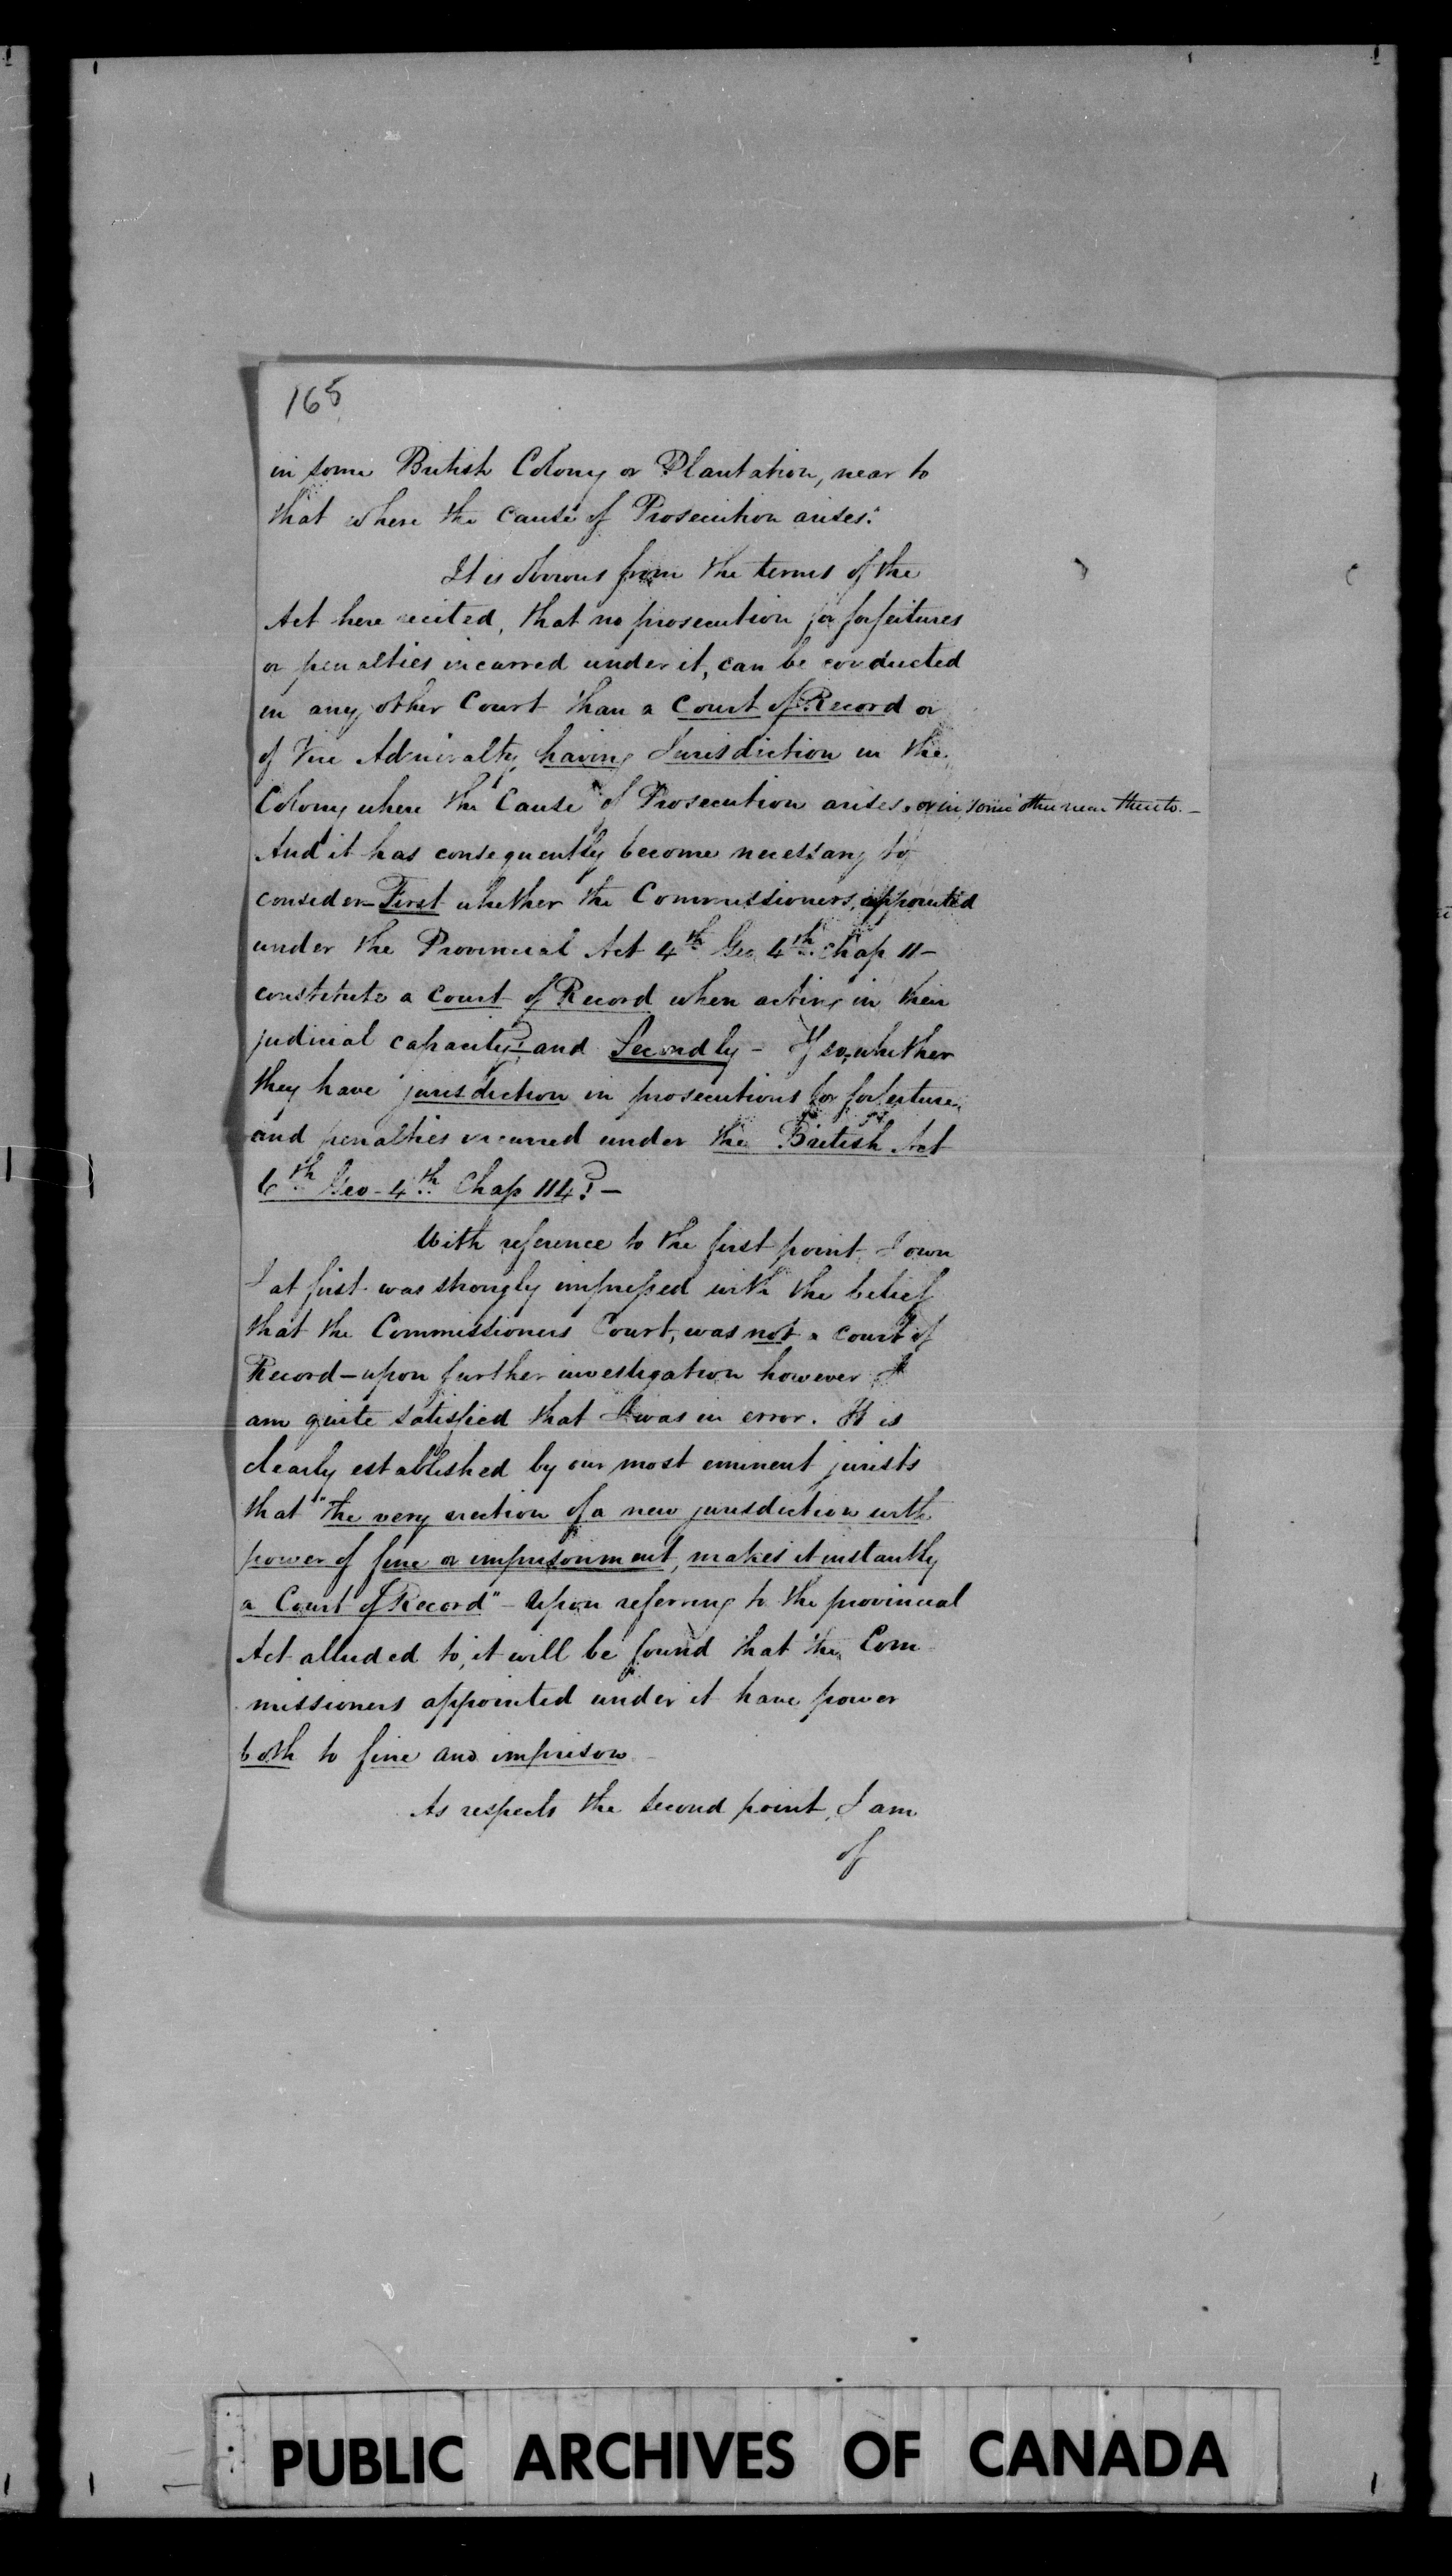 165
in some British Colony or Plantation, near to
that where the Cause of Prosecution arises."
It is obvious from the terms of the
Act here recited, that no prosecution for forfeitures
or penalties incurred under it, can be conducted
in any other Court than a Court of Record or
of Vice Admiralty having Jurisdiction in the
Colony where the Cause of Prosecution arises or in some other near thereto.—
And it has consequently become necessary to
consider—First whether the Commissioners, appointed
under the Provincial Act 4th Geo. 4th. Chap 11—
constitute a Court of Record when acting in their
judicial capacity?—and Secondly — If so, whether
they have jurisdiction in prosecutions for forfeitures
and penalties incurred under the British Act
6th Geo - 4th Chap 114?—
With reference to the first point, I own
I at first was strongly impressed with the belief
that the Commissioners Court, was not a Court of
Record—upon further investigation however I
am quite satisfied that I was in error. It is
clearly established by our most eminent jurists
that "the very erection of a new jurisdiction with
power of fine or imprisonment, makes it instantly
a Court of Record"—Upon referring to the provincial
Act alluded to, it will be found that the Com
missioners appointed under it have power
both to fine and imprison—
As respects the second point, I am
of
PUBLIC ARCHIVES OF CANADA